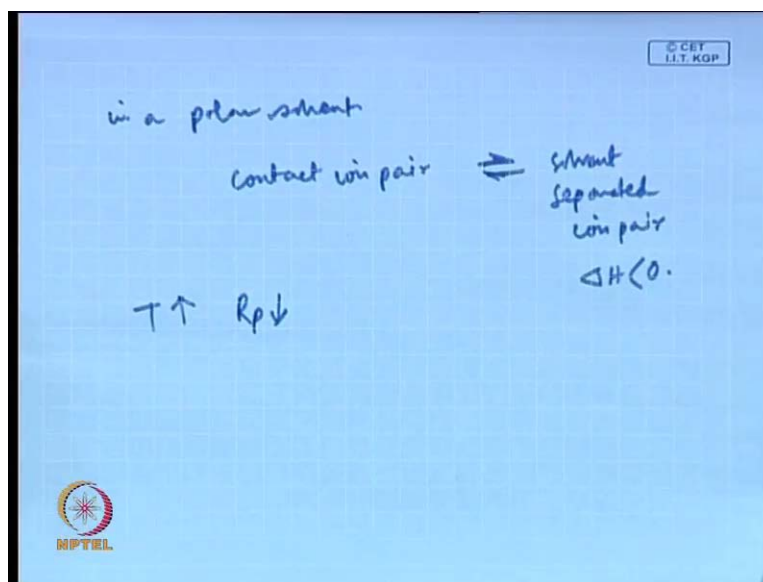 © CET
I.I.T. KGP
in a polar solvent
contact ion pair ⇌ solvent
separated
ion pair
ΔH<0.
T↑ Rp↓
NPTEL